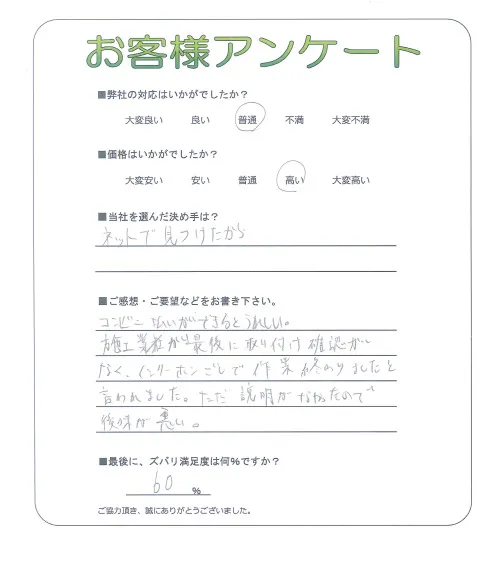 お客様アンケート
■弊社の対応はいかがでしたか？
大変良い 良い 普通 不満 大変不満
■価格はいかがでしたか？
大変安い 安い 普通 高い 大変高い
■当社を選んだ決め手は？
ネットで見つけたから
■ご感想・ご要望などをお書き下さい。
コンビニ払いができるとうれしい。
施工業者が最後に取り付け確認が
なく、インターホンごしで作業終わりましたと
言われました。ただ説明がなかったので
後味が悪い。
■最後に、ズバリ満足度は何%ですか？
60 %
ご協力頂き、誠にありがとうございました。